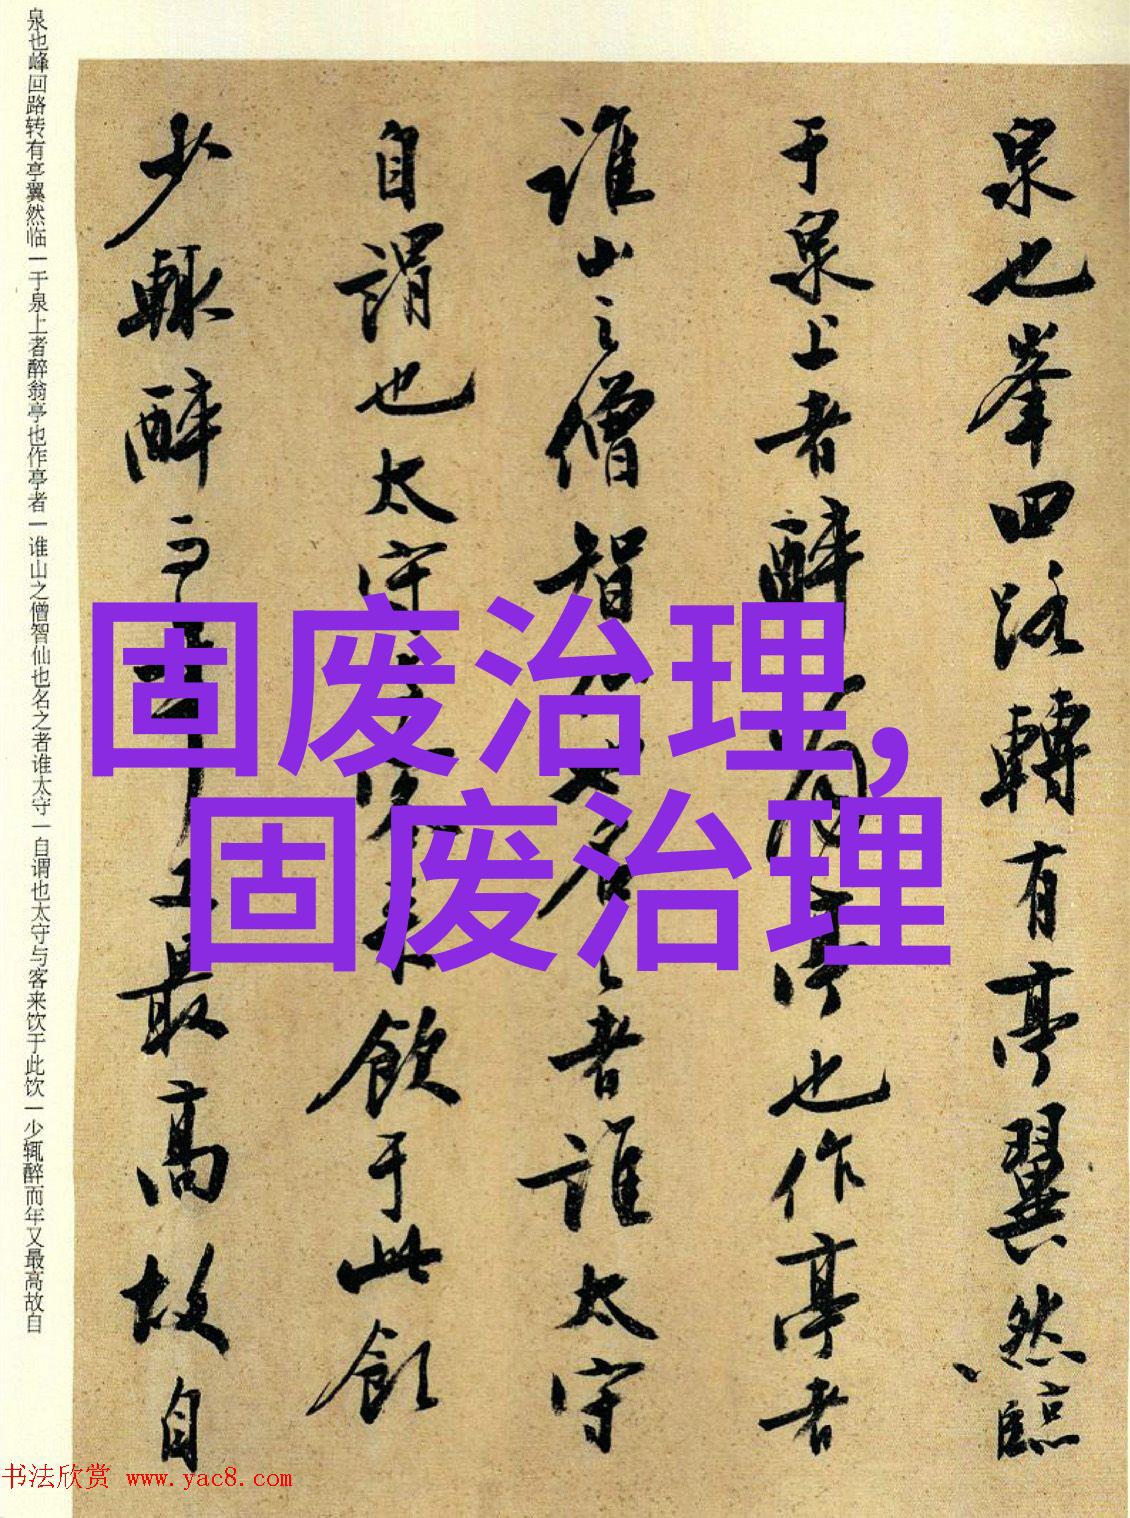 泉也峯回路轉有亭翼然臨
于泉上者醉翁亭也作亭者
誰山之僧智仙也名之者誰太守
自謂也太守與客來飲于此飲
少輒醉而年又最高故自
泉也峰回路转有亭翼然临一于泉上者醉翁亭也作亭者一谁山之僧智仙也名之者谁太守一自谓也太守与客来饮于此饮一少辄醉而年又最高故自
固废治理,
固废治理
书法欣赏 www.yac8.com